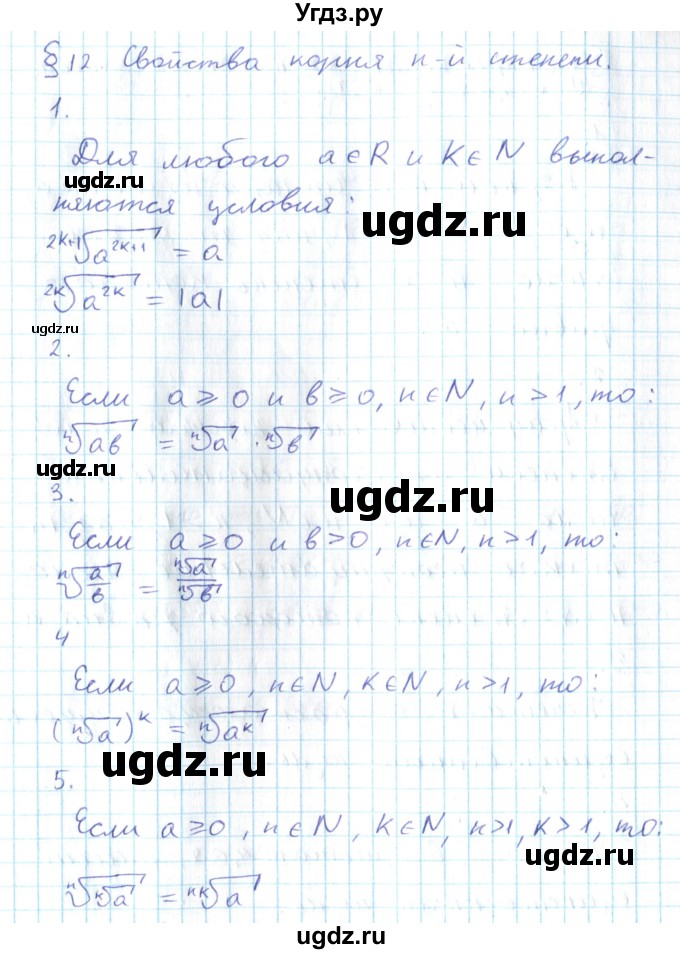 Угдз.ру
§ 12 Свойства корня n-й степени.
1.
Для любого a∈R и K∈N выпол-
няются условия:
ugdz.ru
ugdz.ru
²ᵏ⁺¹√a²ᵏ⁺¹ = a
²ᵏ√a²ᵏ = |a|
ugdz.ru
ugdz.ru
2.
Если a ⩾ 0 и в ⩾ 0, n∈N, n > 1, то:
ⁿ√aв = ⁿ√a · ⁿ√в
ugdz.ru
3.
ugdz.ru
Если a ⩾ 0 и в > 0, n∈N, n > 1, то:
ⁿ√(a/в) = ⁿ√a / ⁿ√в
ugdz.ru
4
Если a ⩾ 0, n∈N, K∈N, n > 1, то:
(ⁿ√a)ᵏ = ⁿ√aᵏ
ugdz.ru
5.
ugdz.ru
Если a ⩾ 0, n∈N, K∈N, n>1, K>1, то:
ugdz.ru
ⁿ√ᵏ√a = ⁿᵏ√a
ugdz.ru